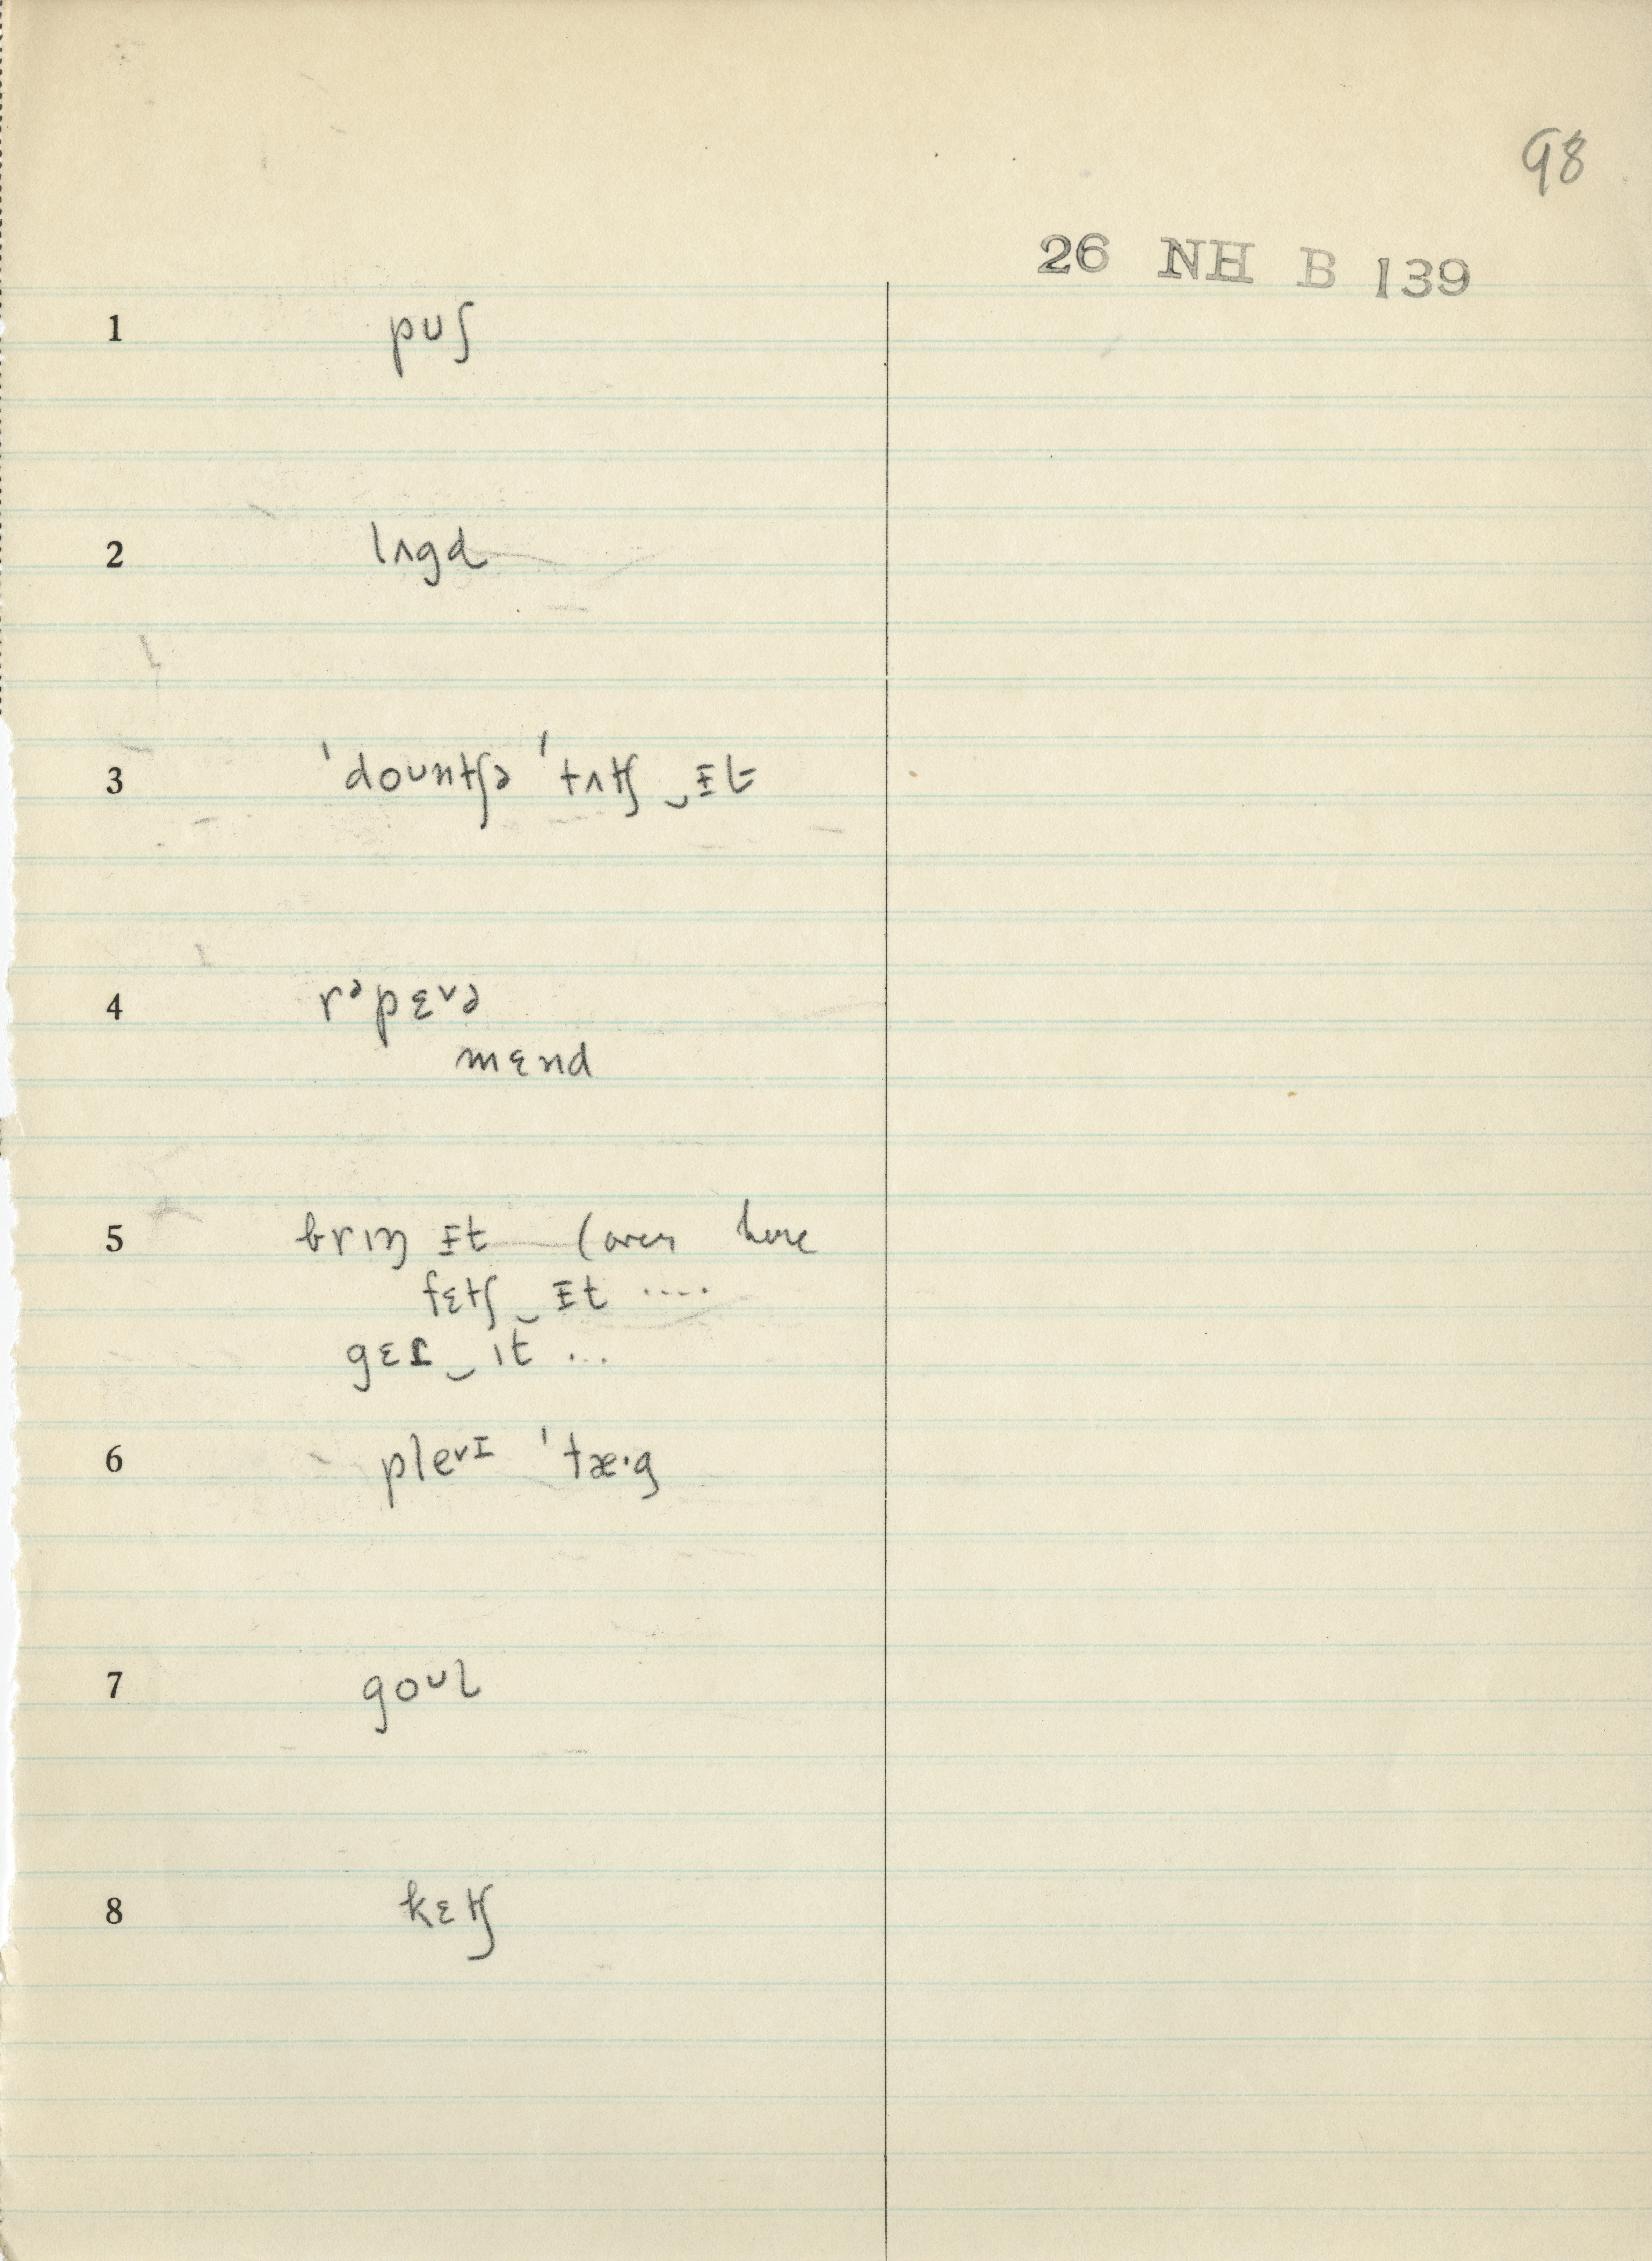 98
26 NH B 139
1 puʃ
2 lʌgd
3 ˈdountʃə ˈtʌtʃ‿ᵻt
4 rᵊpɛᵛə
mɛnd
5 brɪŋ ᵻt (over here
fɛtʃ‿ᵻt ....
gɛɾ‿ɪt ...
6 pleᵛᴵ ˈtæ·g
7 goᶷl
8 kɛtʃ